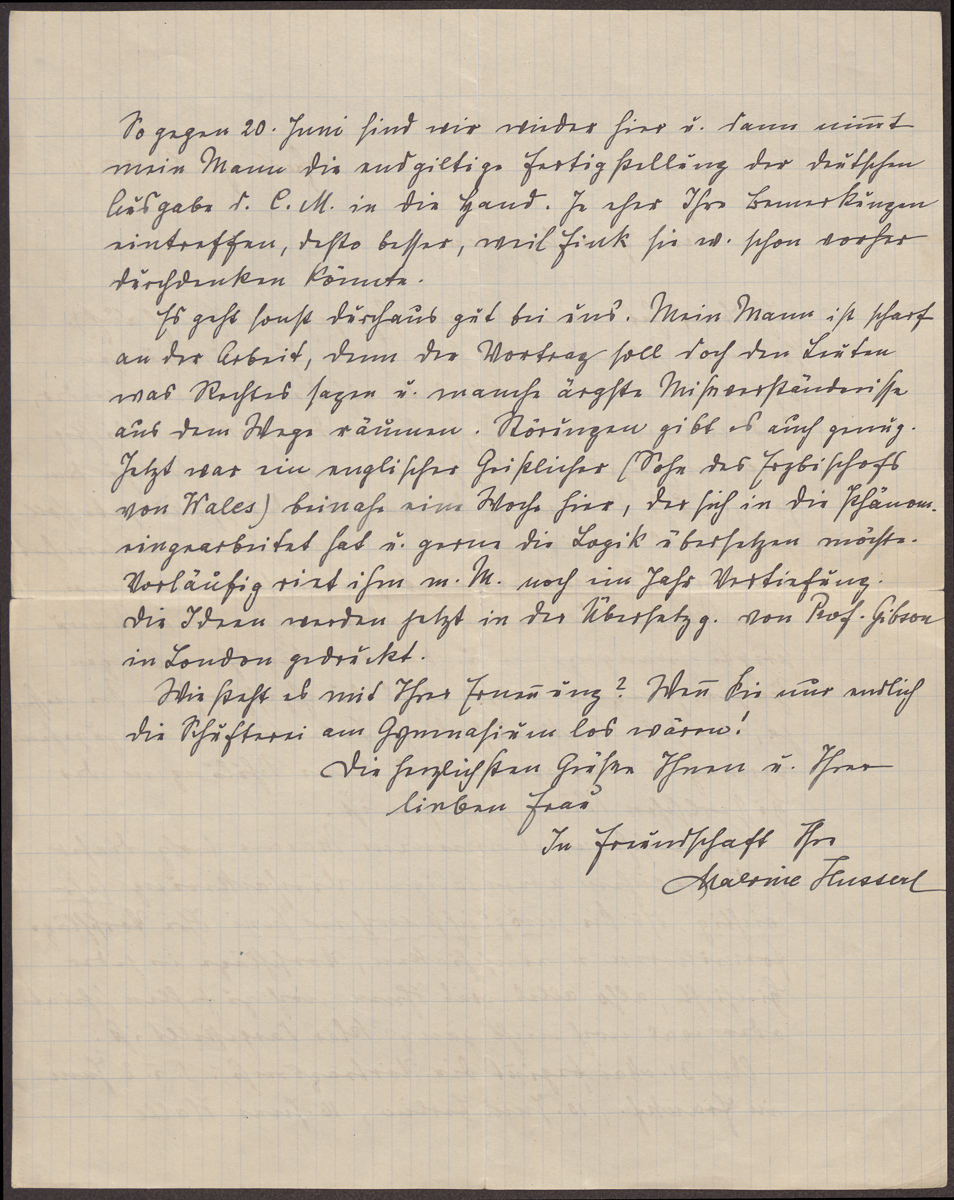 So gegen 20. Juni sind wir wieder hier u. dann nim̅t
mein Mann die endgiltige Fertigstellung der deutschen
Ausgabe d. C. M. in die Hand. Je eher Ihre Bemerkungen
eintreffen, desto besser, weil Fink sie w. schon vorher
durchdenken könnte.
Es geht sonst durchaus gut bei uns. Mein Mann ist scharf
an der Arbeit, denn der Vortrag soll doch den Leuten
was Rechtes sagen u. manche ärgste Missverständnisse
aus dem Wege räumen. Störungen gibt es auch genug.
Jetzt war ein englischer Geistlicher (Sohn des Erzbischofs
von Wales) beinahe eine Woche hier, der sich in die Phänom.
eingearbeitet hat u. gerne die Logik übersetzen möchte.
Vorläufig riet ihm m. M. noch ein Jahr Vertiefung.
Die Ideen werden jetzt in der Übersetzg. von Prof. Gibson
in London gedruckt.
Wie steht es mit Ihrer Ernen̅ung? Wen̅ Sie nur endlich
die Schufterei am Gymnasium los wären!
Die herzlichsten Grüße Ihnen u. Ihrer
lieben Frau
In Freundschaft Ihre
Malvine Husserl